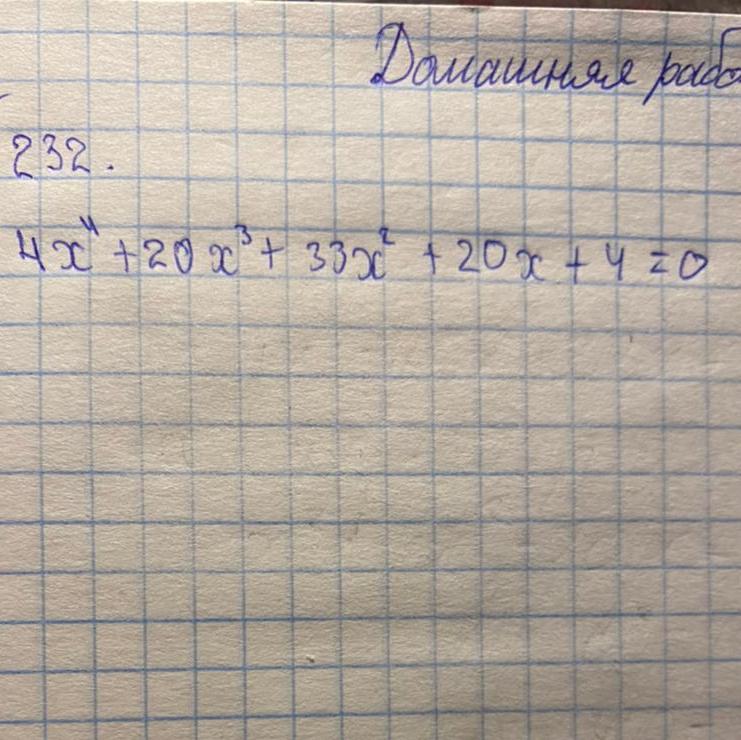 Домашняя рабо
232.
4x⁴ + 20x³ + 33x² + 20x + 4 = 0